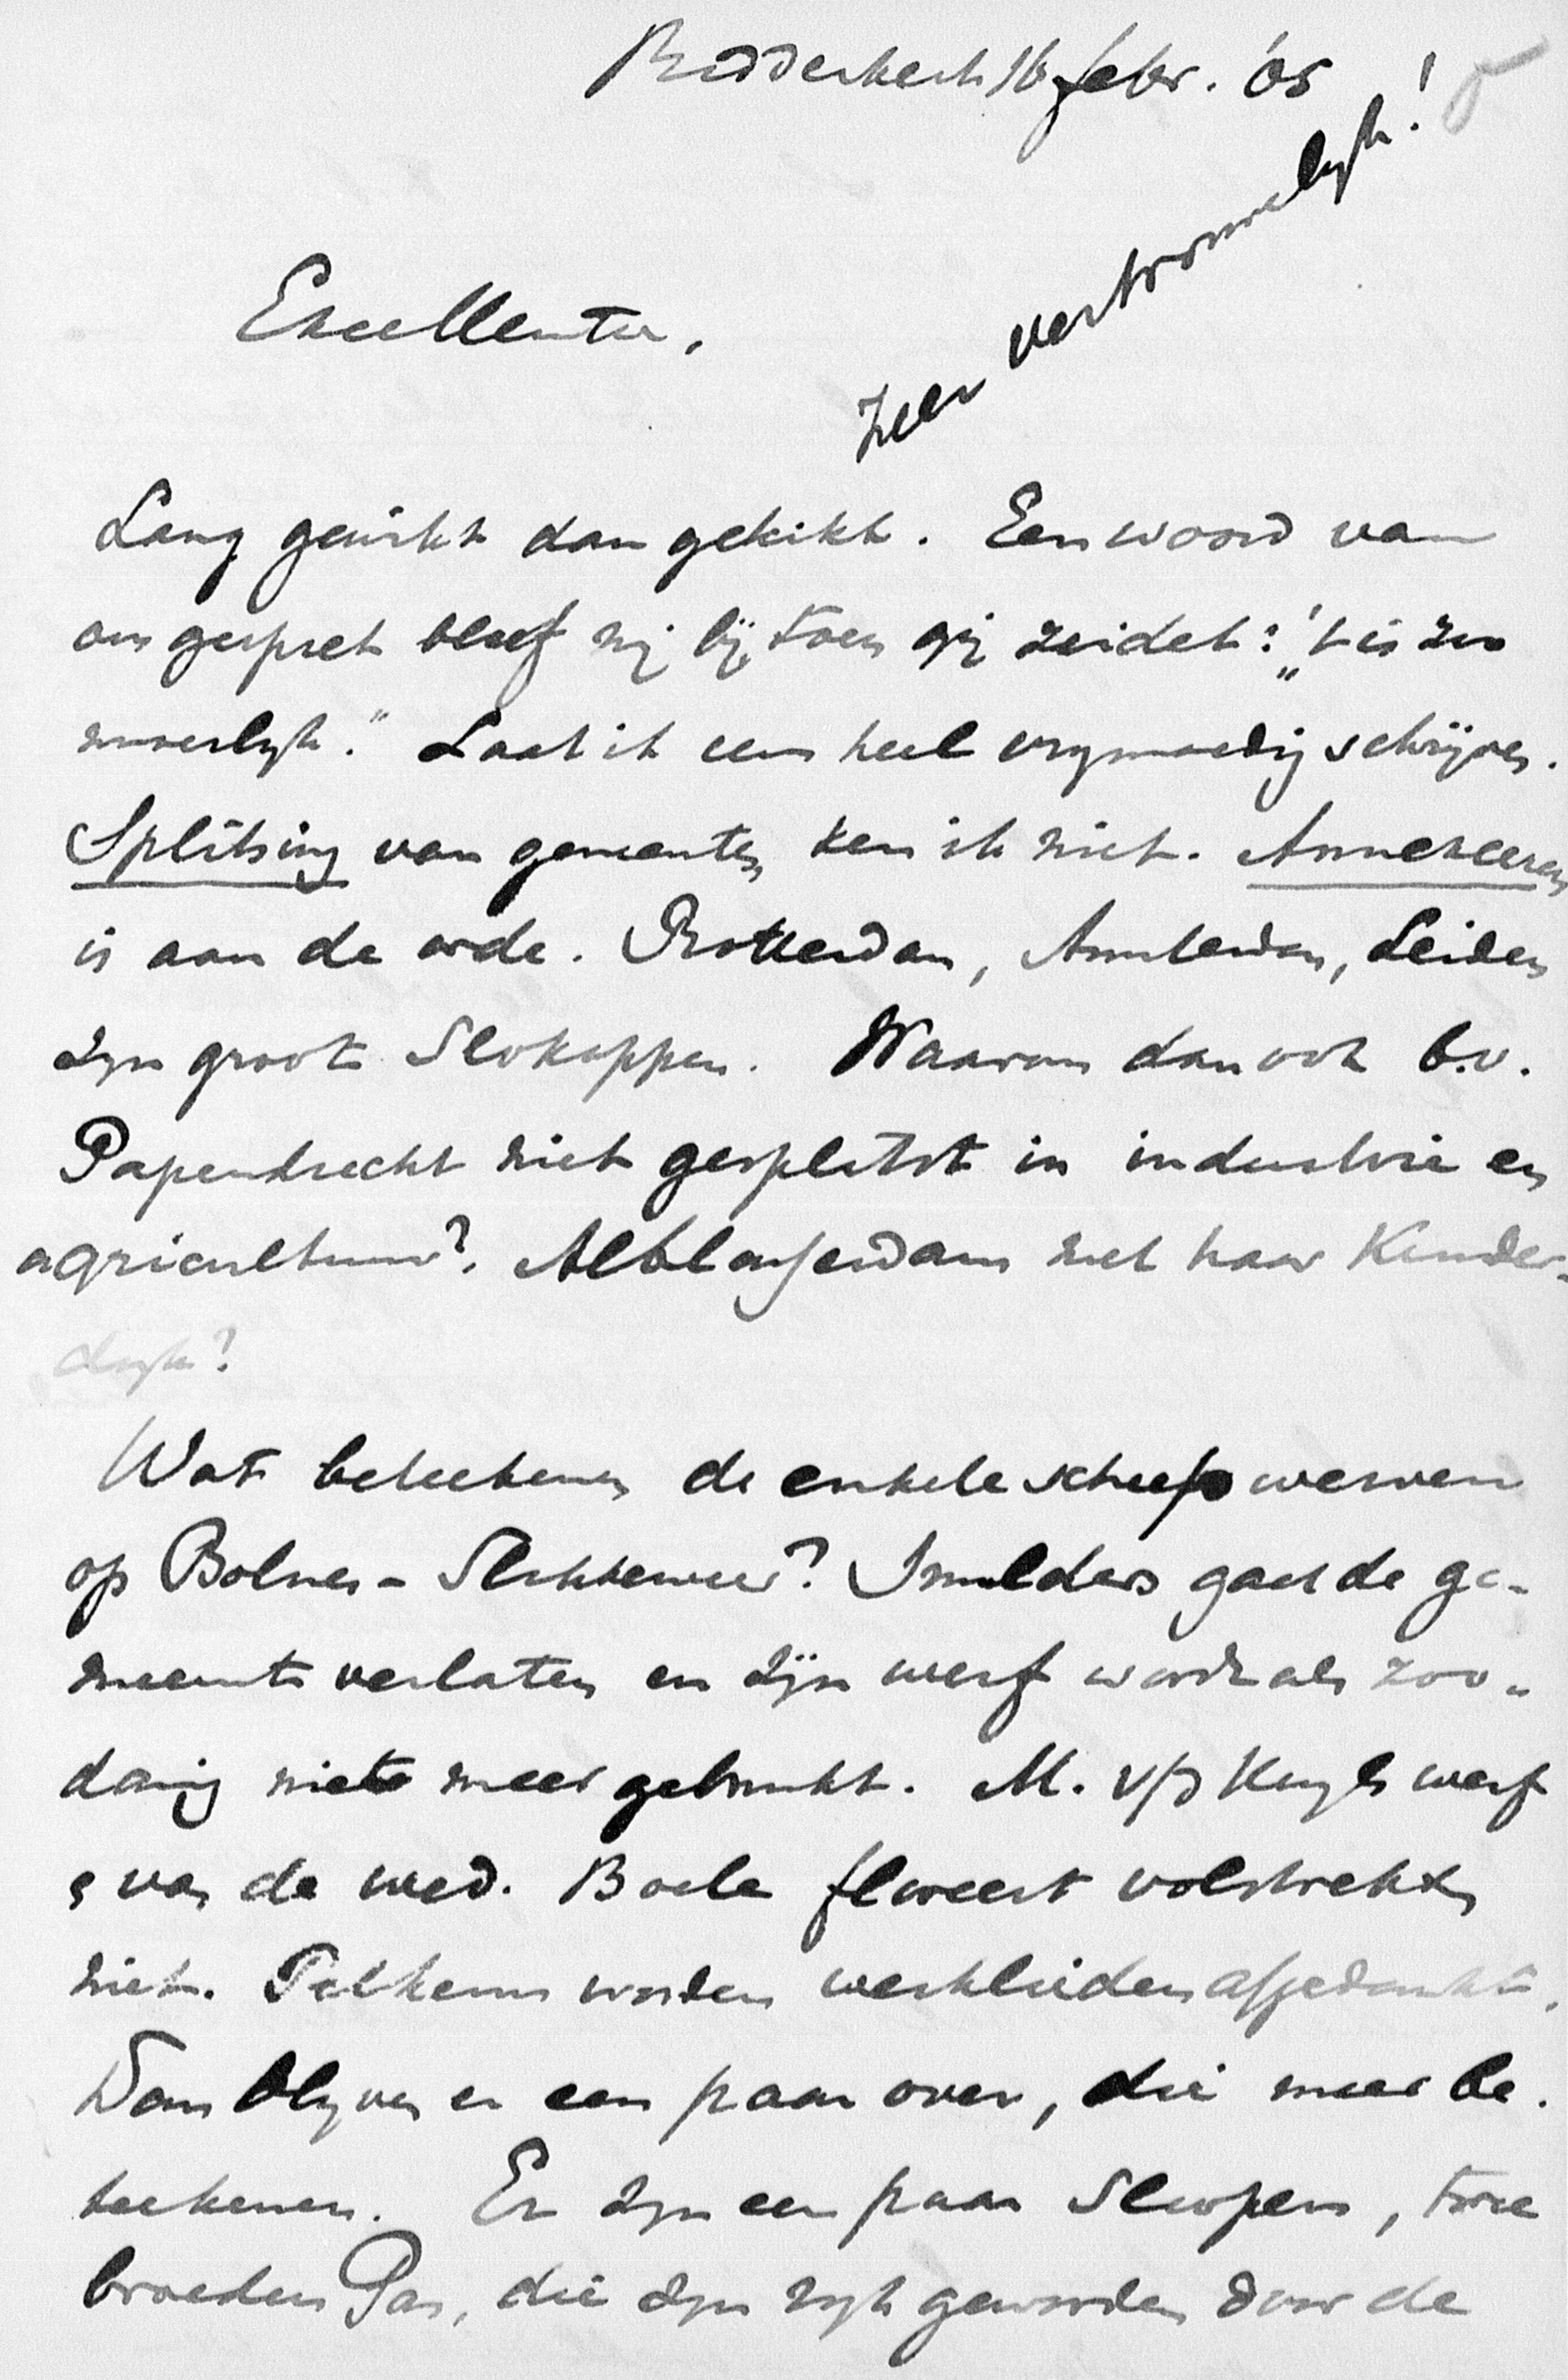 Ridderkerk 16 febr. '05
Zeer vertrouwelijk!
Excellentie,
Lang gewikt dan gekikt. Een woord van
ons gesprek bleef mij bij, toen gij zeidet: „'t is zoo
moeilyk." Laat ik eens heel vrymoedig schrijven.
Splitsing van gemeenten ken ik niet. Annexeeren
is aan de orde. Rotterdam, Amsterdam, Leiden
zyn groote Slokoppen. Waarom dan ook b.v.
Papendrecht niet gesplitst in industrie en
agricultuur? Alblasserdam met haar Kinder-
dyk?
Wat beteekenen de enkele scheepswerven
op Bolnes - Slikkerveer? Smulders gaat de ge-
meente verlaten en zijn werf wordt als zoo-
danig niet meer gebruikt. M. v/d Kuyl's werf
& van de wed. Boele floreert volstrekt
niet. Telkens worden werklieden afgedankt.
Dan blyven er een paar over, die meer be-
teekenen. Er zyn een paar Sloopers, twee
broeders Pas, die zyn ryk geworden door de